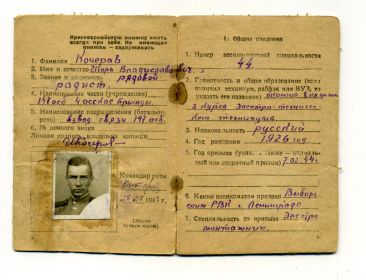 Красноармейскую книжку иметь
всегда при себе. Не имеющих
книжек — задерживать
1. Фамилия Кочеров
2. Имя и отчество Игорь Владиславович
3. Звание и должность рядовой
радист.
4. Наименование части (учреждения)
141 осб 4 осбос бригады
5. Наименование подразделения (батальон,
рота) взвод связи 141 осб.
6. № личного знака
Личная подпись владельца книжки
Командир роты
(Место
печати части)
I. Общие сведения
1. Номер военно-учетной специальности
44.
2. Грамотность и общее образование (если
окончил техникум, рабфак или ВУЗ, то
указать его название)
2 курса Электро-технич
техникума
3. Национальность русский
4. Год рождения 1926 год
5. Год призыва
или досрочный призыв) 7.02.44г.
6. Каким военкоматом призван Выборг-
ским РВК г. Ленинграда
7. Специальность до призыва Электро
монтажник.